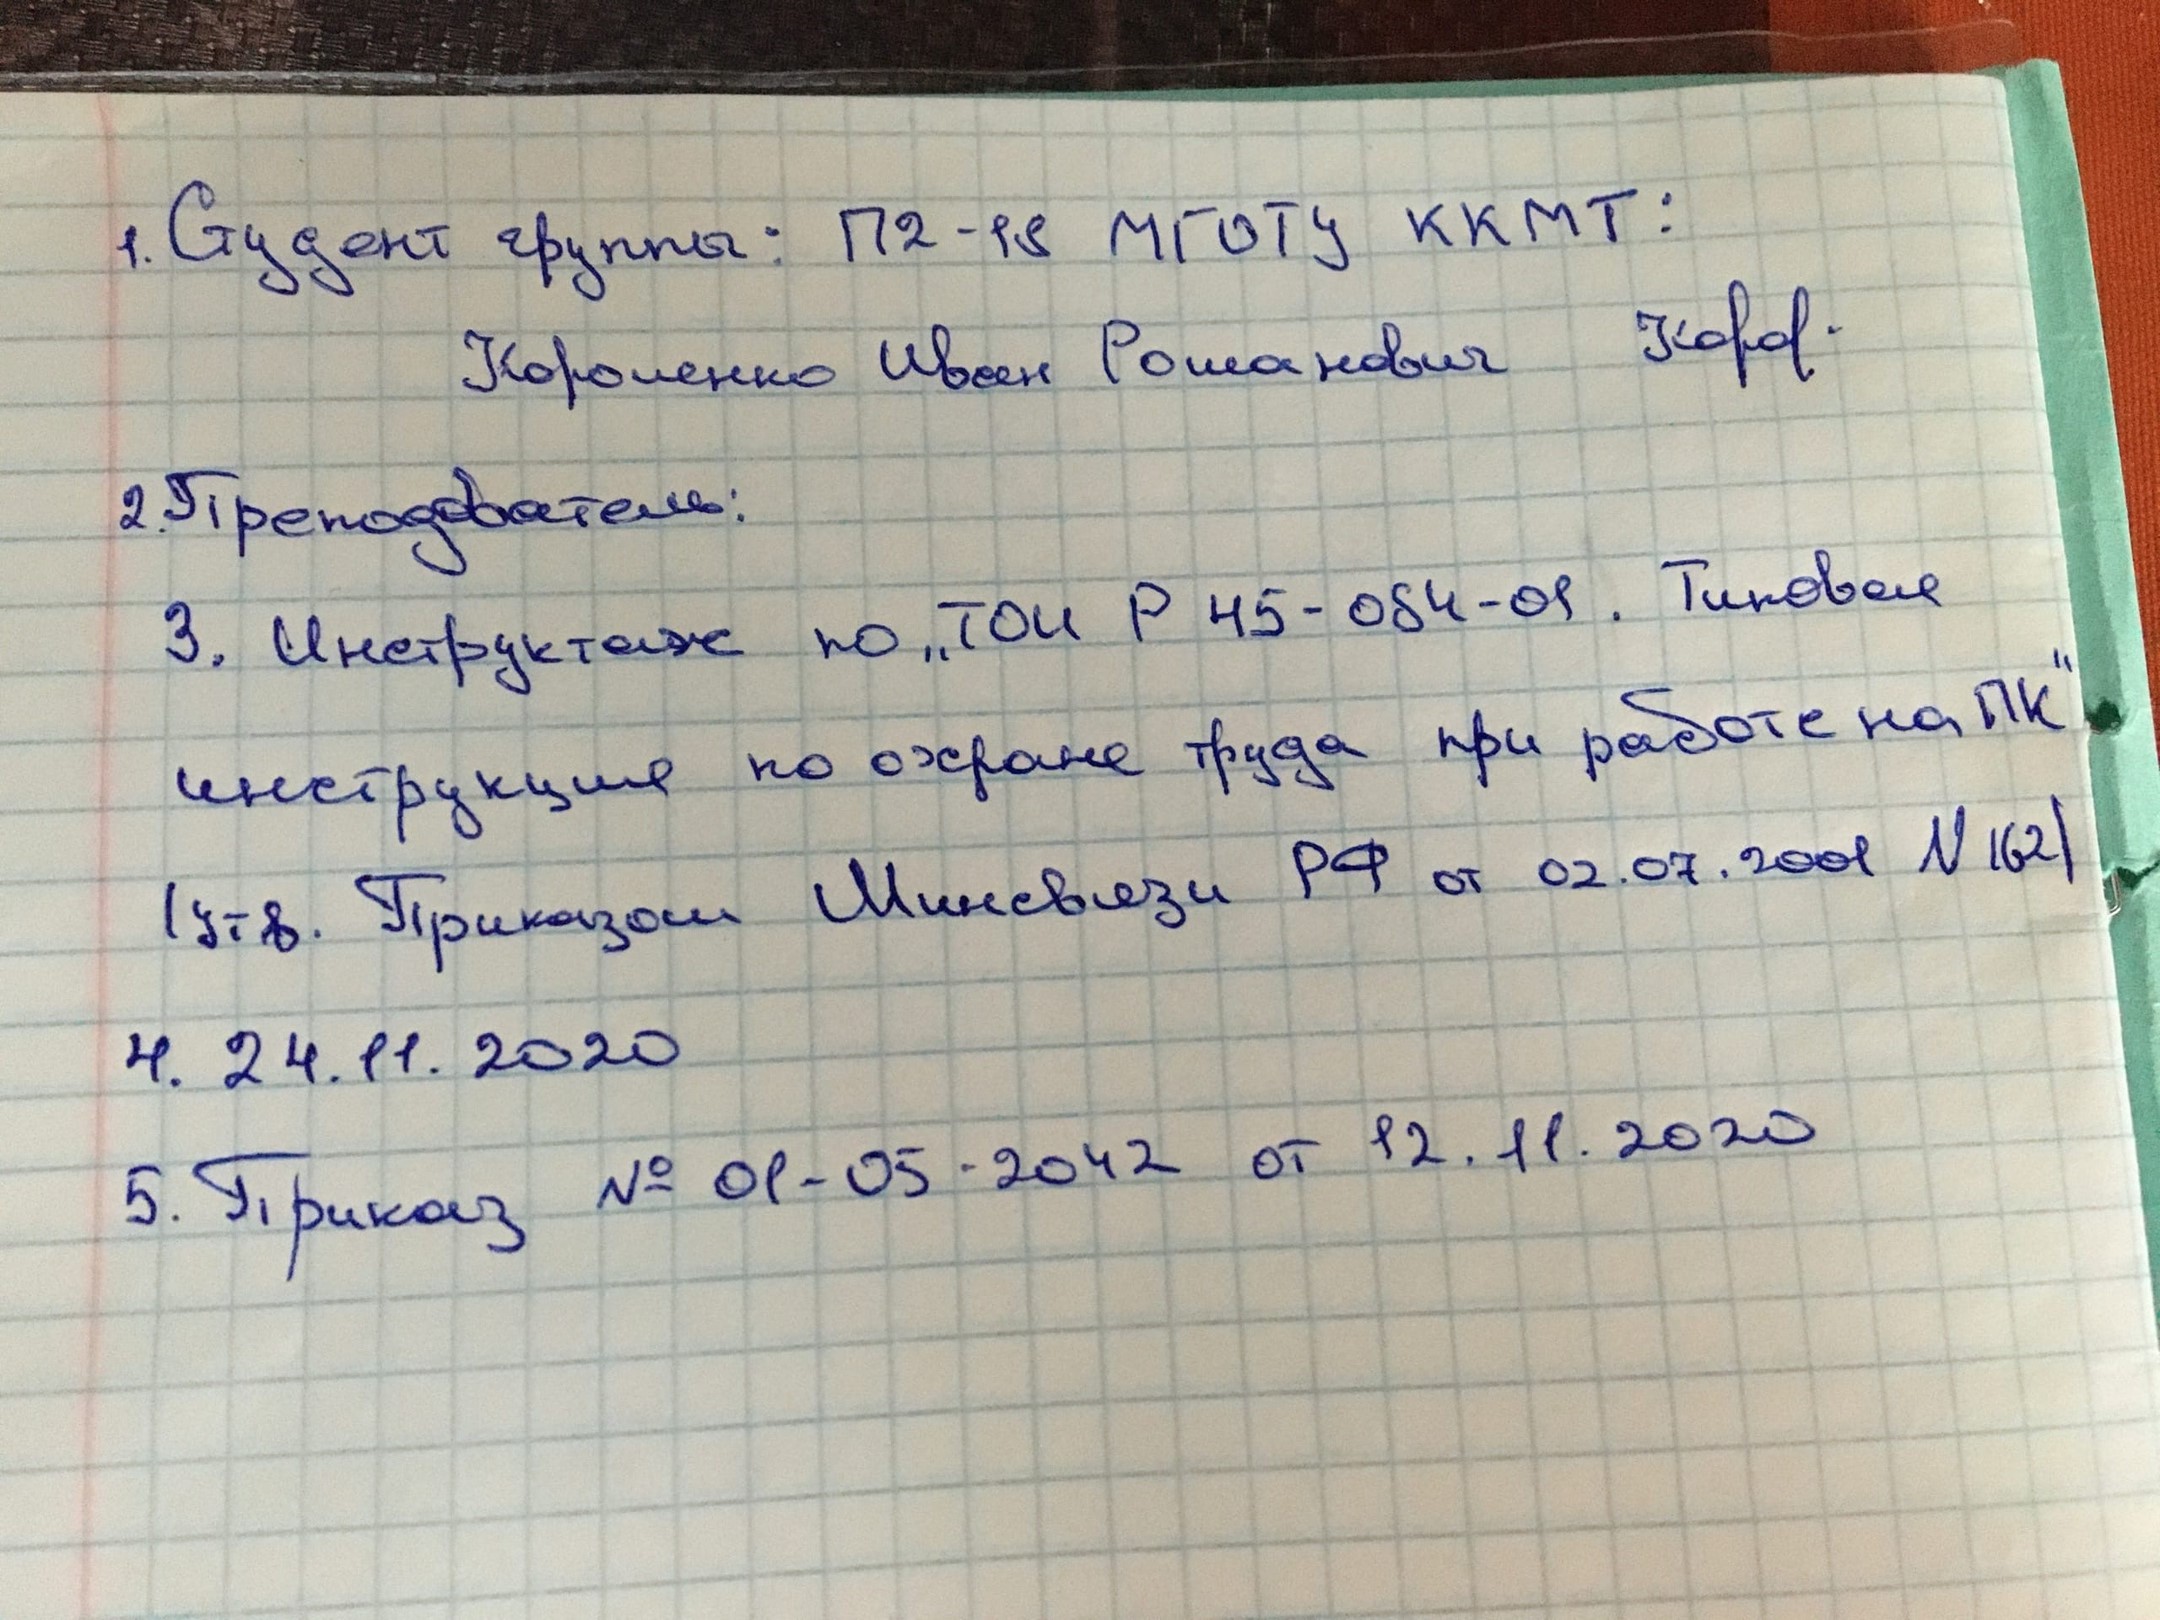 1. Студент группы: П2-18 МГОТУ ККМТ:
Короленко Иван Романович
2. Преподаватель:
3. Инструктаж по „ТОИ Р 45-084-01. Типовая
инструкция по охране труда при работе на ПК"
(утв. Приказом Минсвязи РФ от 02.07.2001 N 162)
4. 24.11.2020
5. Приказ № 01-05-2042 от 12.11.2020